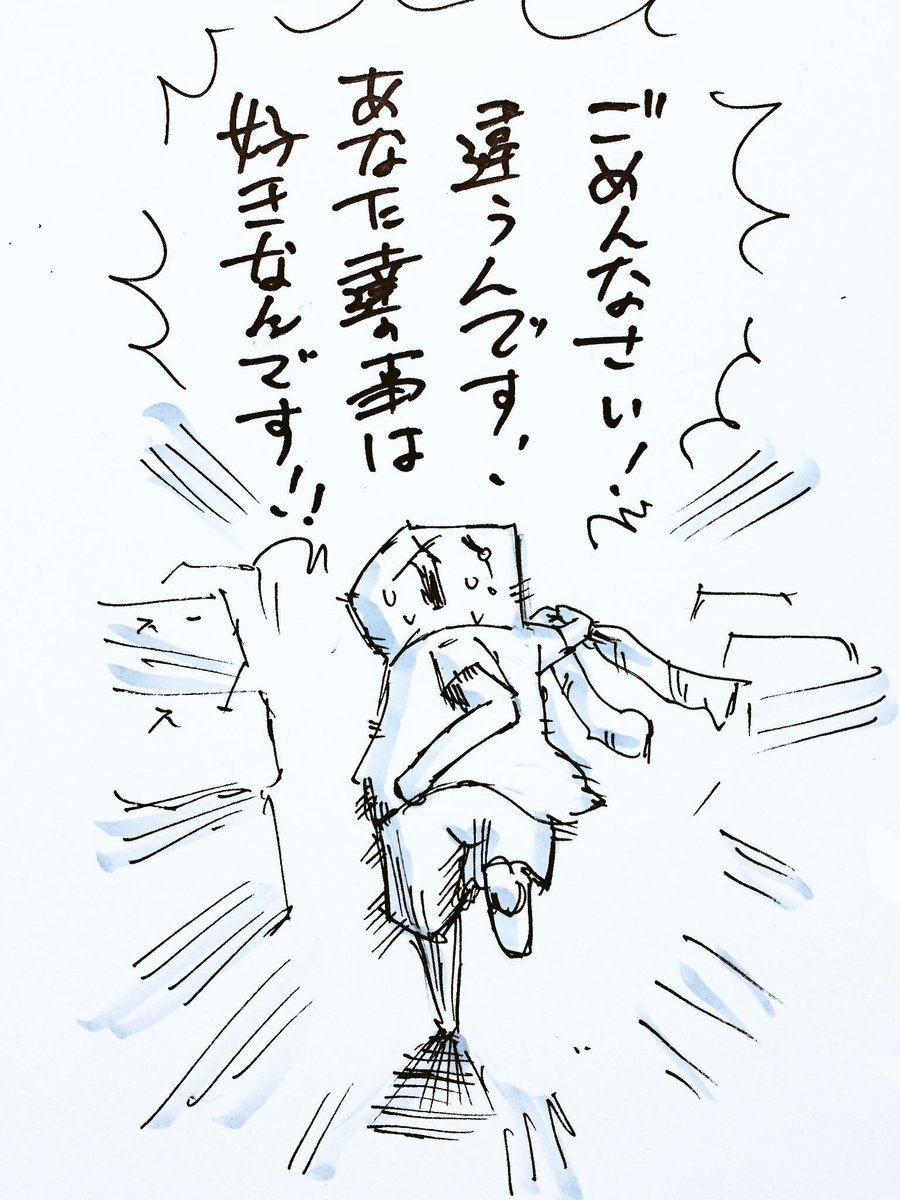 ごめんなさい!
違うんです、
あなた達の事は
好きなんです!!
ス
ス